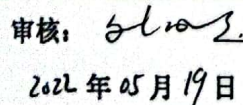 审核：
2022年05月19日